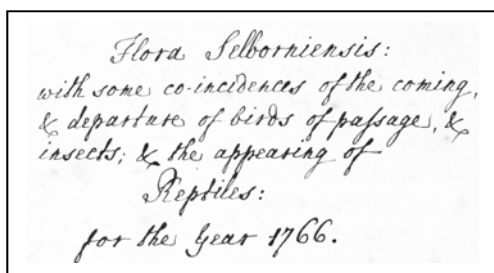 Flora Selborniensis:
with some co-incidences of the coming,
& departure of birds of passage, &
insects; & the appearing of
Reptiles:
for the Year 1766.